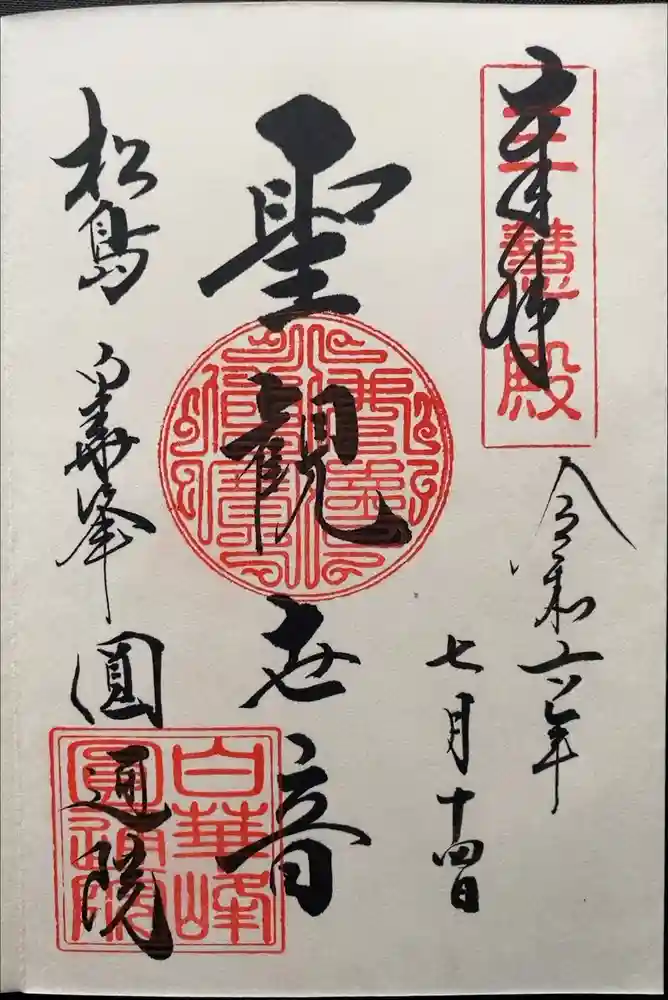 奉拝
三慧殿
令和六年
七月十四日
聖観世音
松島 白華峰 圓通院
白華峰
圓通院